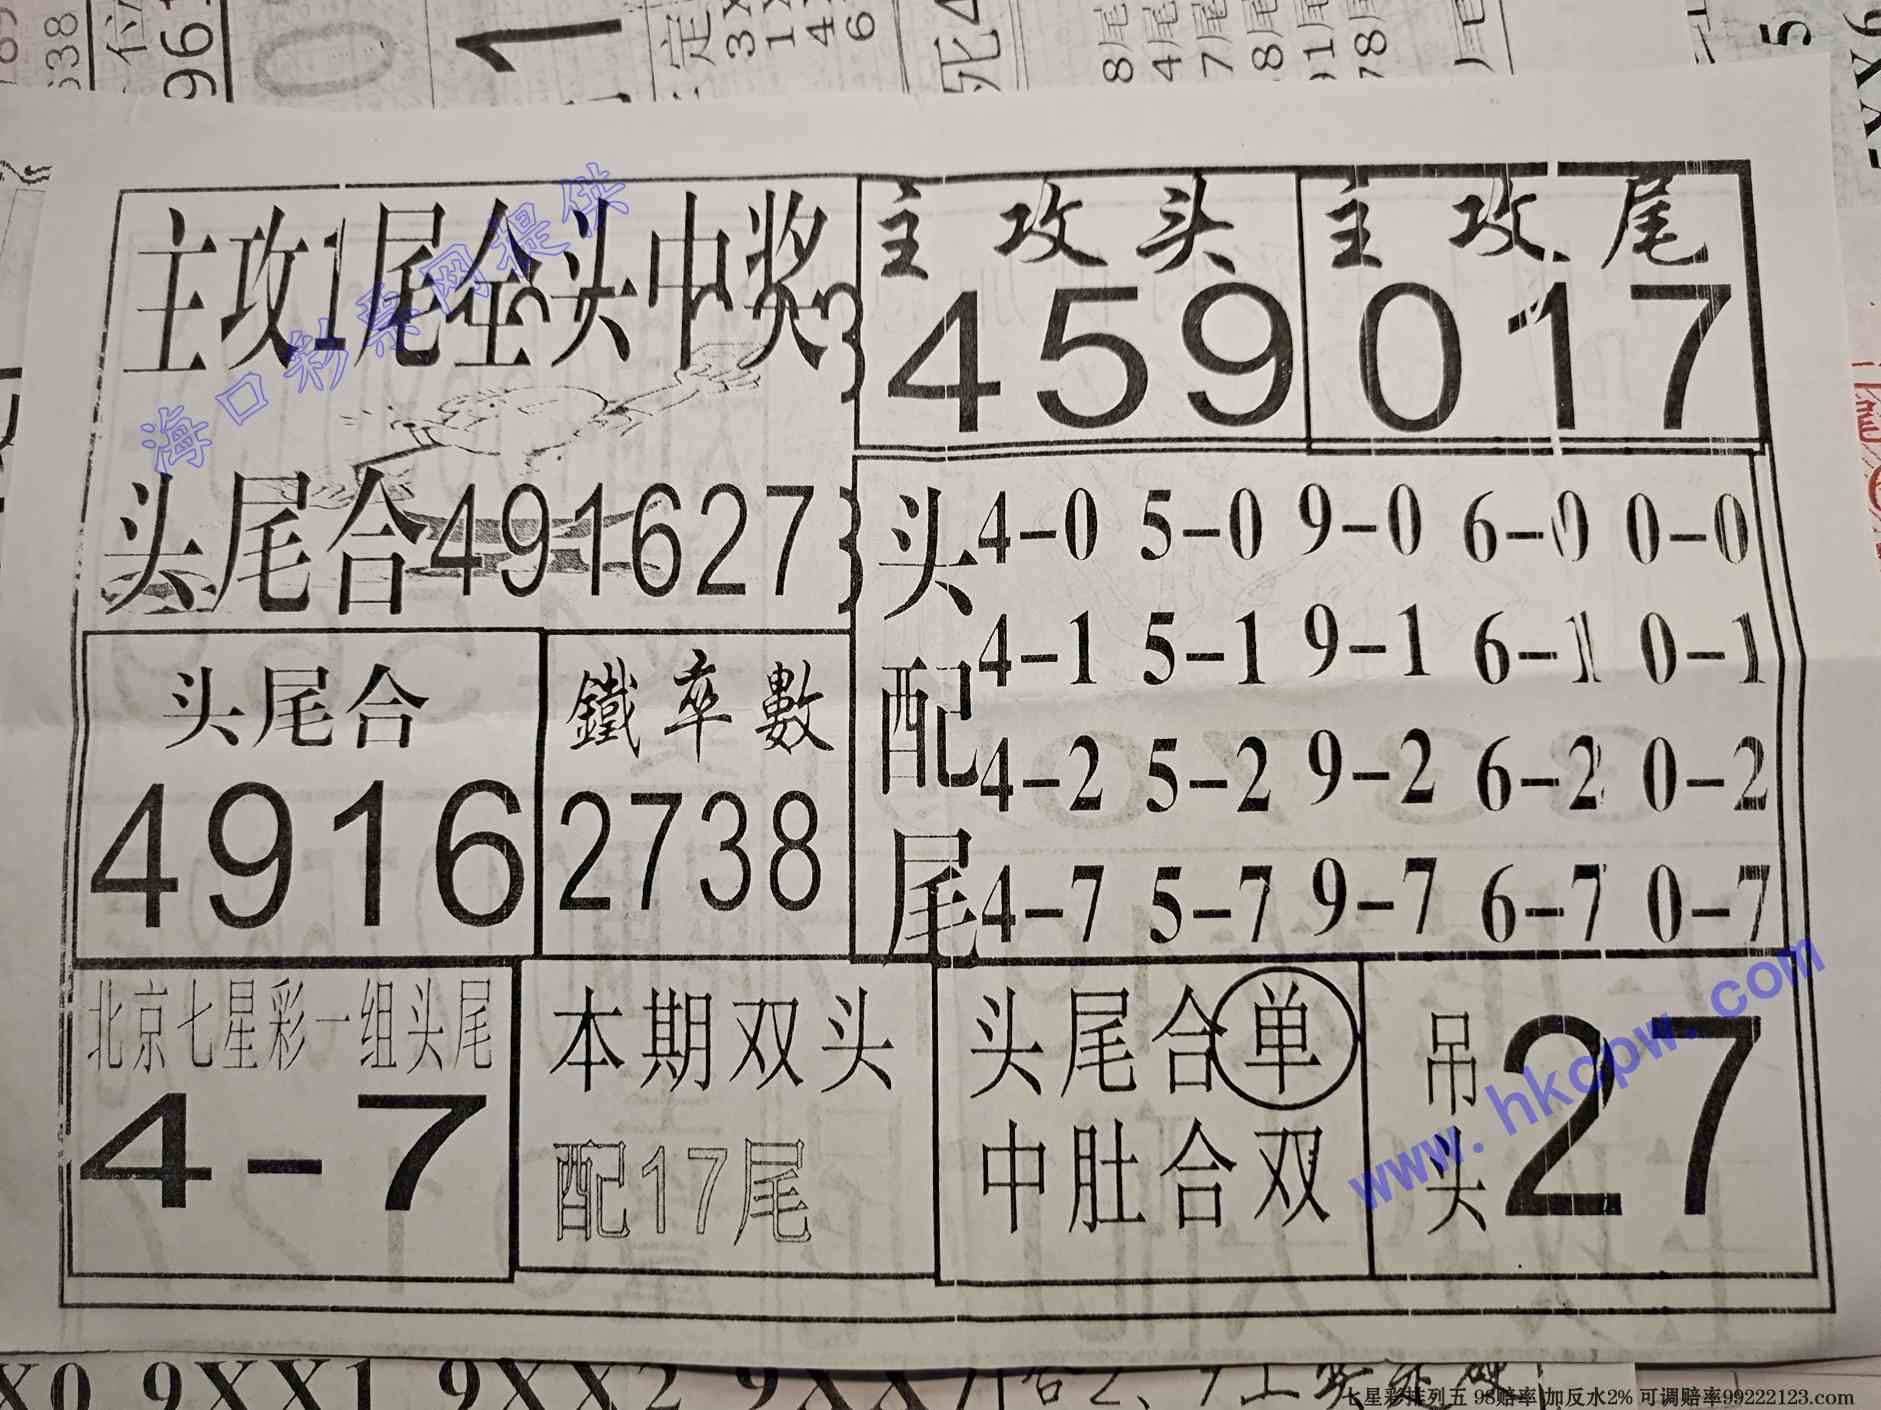 主攻1尾全头中奖
头尾合491627
主攻头
459
主攻尾
017
头配尾
4-0 5-0 9-0 6-0 0-0
4-1 5-1 9-1 6-1 0-1
4-2 5-2 9-2 6-2 0-2
4-7 5-7 9-7 6-7 0-7
头尾合
4916
鐵率數
2738
北京七星彩一组头尾
4-7
本期双头
配17尾
头尾合单
中肚合双
吊头
27
海口彩票网提供
www.hkcpw.com
9XX1 9XX2
七星彩排列五 98赔率 加反水2% 可调赔率99222123.com